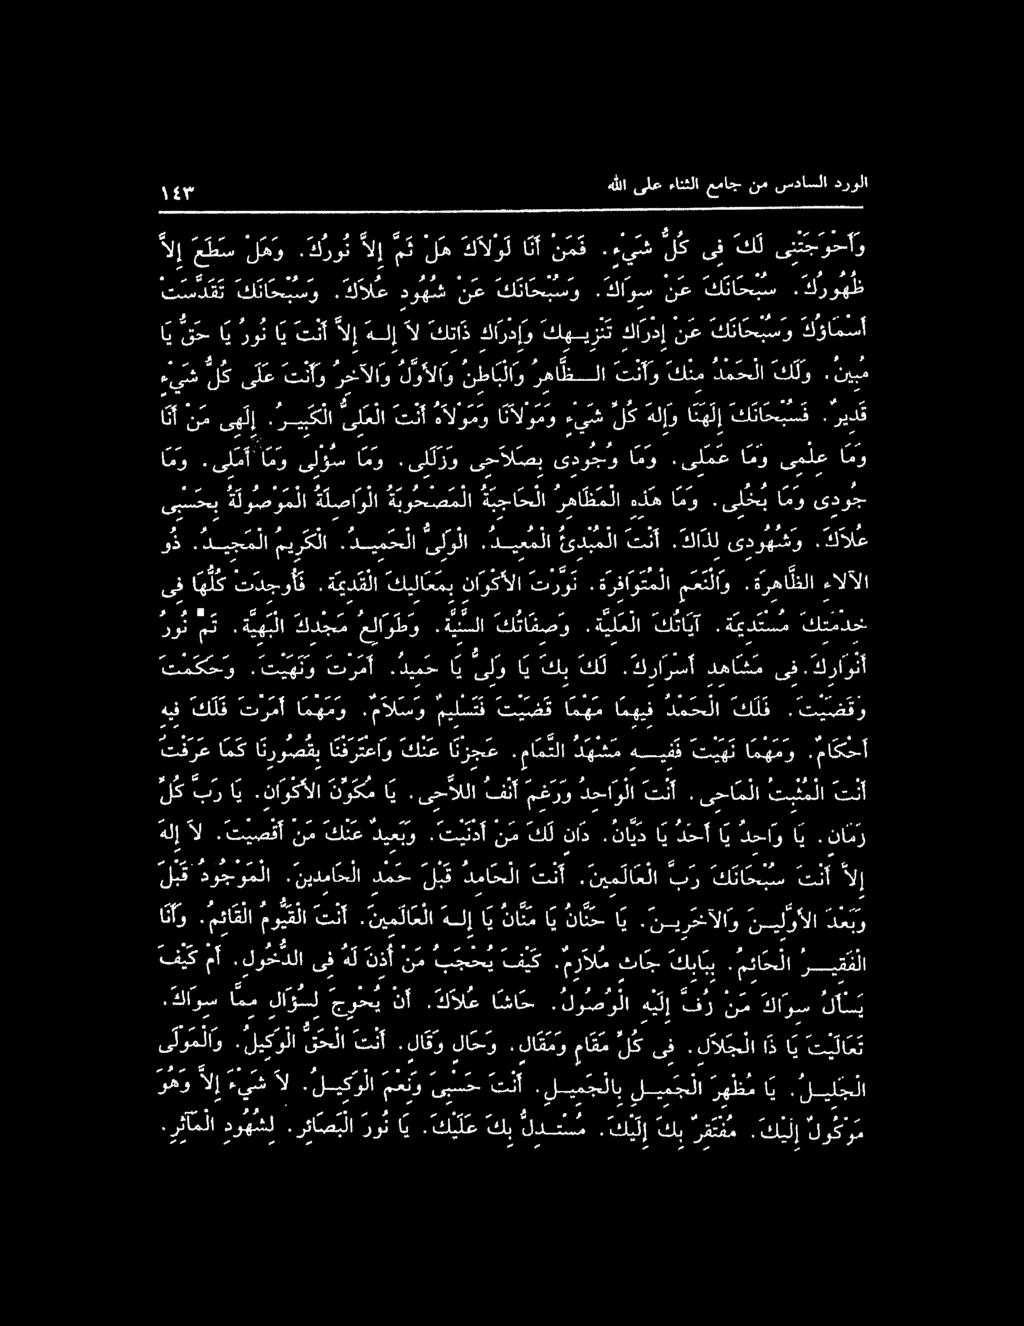 الورد السادس من جامع الثناء على الله ١٤٣
وَأَحْوَجْتَنِى لَكَ فِى كُلِّ شَيْءٍ. فَمَنْ أَنَا لَوْلاَكَ هَلْ ثَمَّ إِلاَّ نُورُكَ. وَهَلْ سَطَعَ إِلاَّ
ظُهُورُكَ. سُبْحَانَكَ عَنْ سِوَاكَ. وَسُبْحَانَكَ عَنْ شُهُودِ عُلاَكَ. وَسُبْحَانَكَ تَقَدَّسَتْ
أَسْمَاؤُكَ وَسُبْحَانَكَ عَنْ إِدْرَاكِ تَنْزِيـهِكَ وَإِدْرَاكِ ذَاتِكَ لاَ إِلـهَ إِلاَّ أَنْتَ يَا نُورُ يَا حَقُّ يَا
مُبِينُ. وَلَكَ الْحَمْدُ مِنْكَ وَأَنْتَ الـظَّاهِرُ وَالْبَاطِنُ وَالأَوَّلُ وَالآخِرُ وَأَنْتَ عَلَى كُلِّ شَيْءٍ
قَدِيرٌ. فَسُبْحَانَكَ إِلَهَنَا وَإِلهَ كُلِّ شَيْءٍ وَمَوْلاَنَا وَمَوْلاَهُ أَنْتَ الْعَلِىُّ الْكَبِيـرُ. إِلَهِى مَنْ أَنَا
وَمَا عِلْمِى وَمَا عَمَلِى. وَمَا وُجُودِى بِصَلاَحِى وَزَلَلِى. وَمَا سُؤْلِى وَمَا أَمَلِى. وَمَا
جُودِى وَمَا بُخْلِى. وَمَا هَذِهِ الْمَظَاهِرُ الْحَاجِبَةُ الْمَصْحُوبَةُ الْوَاصِلَةُ الْمَوْصُولَةُ بِحَسْبِى
عُلاَكَ. وَشُهُودِى لِذَاكَ. أَنْتَ الْمُبْدِئُ الْمُعِيـدُ. الْوَلِىُّ الْحَمِيـدُ. الْكَرِيمُ الْمَجِيـدُ. ذُو
الآلاَءِ الظَّاهِرَةِ. وَالنِّعَمِ الْمُتَوَافِرَةِ. نَوَّرْتَ الأَكْوَانَ بِمَعَالِيكَ الْقَدِيمَةِ. فَأُوجِدَتْ كُلُّهَا فِى
خِدْمَتِكَ مُسْتَدِيمَةِ. آيَاتُكَ الْعَلِيَّةِ. وَصِفَاتُكَ السَّنِيَّةِ. وَطَوَالِعُ مَجْدِكَ الْبَهِيَّةِ. تَمَّ نُورُ
أَنْوَارِكَ. فِى مَشَاهِدِ أَسْرَارِكَ. لَكَ بِكَ يَا وَلِىُّ يَا حَمِيدُ. أَمَرْتَ وَنَهَيْتَ. وَحَكَمْتَ
وَقَضَيْتَ. فَلَكَ الْحَمْدُ فِيهِمَا مَهْمَا قَضَيْتَ فَتَسْلِيمٌ وَسَلاَمٌ. وَمَهْمَا أَمَرْتَ فَلَكَ فِيهِ
أَحْكَامٌ. وَمَهْمَا نَهَيْتَ فَفِيـهِ مَشْهَدُ التَّمَامِ. عَجِزْنَا عَنْكَ وَاعْتَرَفْنَا بِقُصُورِنَا كَمَا عَرَفْتَ
أَنْتَ الْمُثْبِتُ الْمَاحِى. أَنْتَ الْوَاحِدُ وَرَغِمَ أَنْفُ اللاَّحِى. يَا مُكَوِّنَ الأَكْوَانِ. يَا رَبَّ كُلِّ
زَمَانٍ. يَا وَاحِدُ يَا أَحَدُ يَا دَيَّانُ. دَانٍ لَكَ مَنْ أَدْنَيْتَ. وَبَعِيدٌ عَنْكَ مَنْ أَقْصَيْتَ. لاَ إِلهَ
إِلاَّ أَنْتَ سُبْحَانَكَ رَبَّ الْعَالَمِينَ. أَنْتَ الْحَامِدُ قَبْلَ حَمْدِ الْحَامِدِينَ. الْمَوْجُودُ قَبْلَ
وَبَعْدَ الأَوَّلِيـنَ وَالآخَرِيـنَ. يَا حَنَّانُ يَا مَنَّانُ يَا إِلـهَ الْعَالَمِينَ. أَنْتَ الْقَيُّومُ الْقَائِمُ. وَأَنَا
الْفَقِيـرُ الْحَائِمُ. بِبَابِكَ جَاثٍ مُلاَزِمٌ. كَيْفَ يُحْجَبُ مَنْ أُذِنَ لَهُ فِى الدُّخُولِ. أَمْ كَيْفَ
يَسْأَلُ سِوَاكَ مَنْ زُفَّ إِلَيْهِ الْوُصُولُ. حَاشَا عُلاَكَ. أَنْ يُحْوِجَ لِسُؤَالِ مِمَّا سِوَاكَ.
تَعَالَيْتَ يَا ذَا الْجَلاَلِ. فِى كُلِّ مَقَامٍ وَمَقَالٍ. وَحَالٍ وَقَالٍ. أَنْتَ الْحَقُّ الْوَكِيلُ. وَالْمَوْلَى
الْجَلِيـلُ. يَا مُظْهِرَ الْجَمِيـلِ بِالْجَمِيـلِ. أَنْتَ حَسْبِىَ وَنِعْمَ الْوَكِيـلُ. لاَ شَيْءَ إِلاَّ وَهُوَ
مَوْكُولٌ إِلَيْكَ. مُفْتَقِرٌ بِكَ إِلَيْكَ. مُسْتَـدِلٌّ بِكَ عَلَيْكَ. يَا نُورَ الْبَصَائِرِ. لِشُهُودِ الْمَآثِرِ.